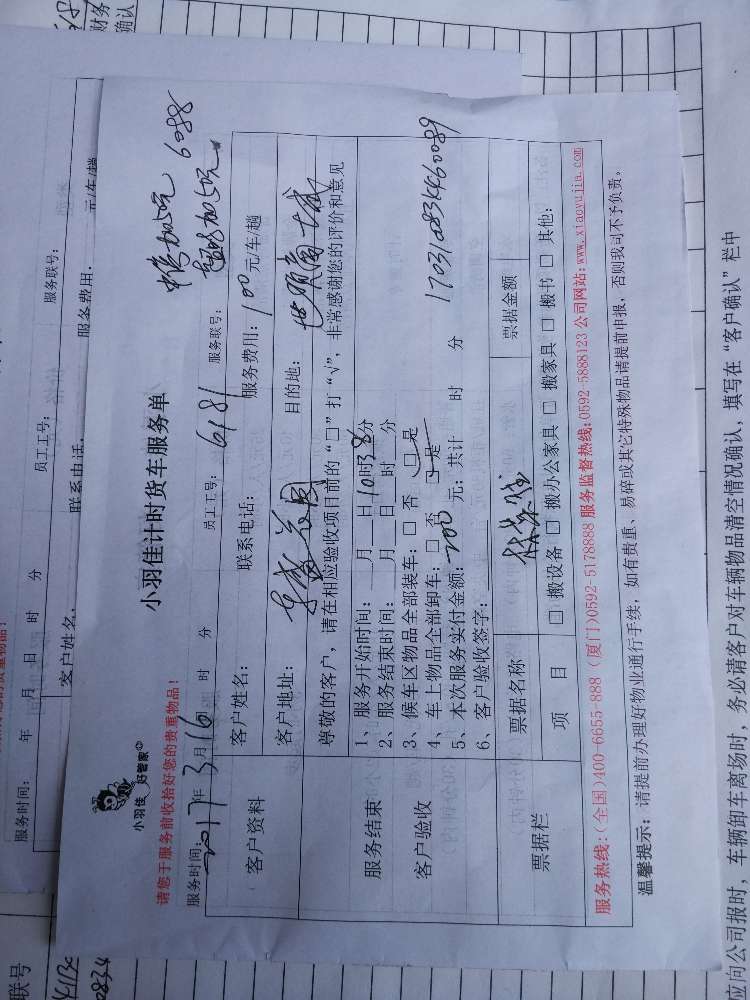 财务
确认
服务联号：
员工工号：
服务时间： 年 月 日 时 分
服务费用： 元/车/趟
联系电话：
客户姓名：
小羽佳 好管家
小羽佳计时货车服务单
请您于服务前收拾好您的贵重物品！
6088
服务时间：2017年3月16 时 分 员工工号：6181 服务联号：
客户资料
客户姓名： 联系电话： 服务费用：100元/车/趟
客户地址： 花园 目的地：
尊敬的客户，请在相应验收项目前的“□”打“√”，非常感谢您的评价和意见
服务结束
客户验收
1、服务开始时间： 月 日10时38分
2、服务结束时间： 月 日 时 分
3、候车区物品全部装车：□ 否 □是
4、车上物品全部卸车：□ 否 □是
5、本次服务实付金额：200 元；共计 时 分
6、客户验收签字：
170310083460089
票据栏
票据名称 票据金额
项 目 □ 搬设备 □ 搬办公家具 □ 搬家具 □ 搬书 □ 其他：
服务热线：(全国)400-6655-888 (厦门)0592-5178888 服务监督热线：0592-5888123 公司网站：www.xiaoyujia.com
温馨提示：请提前办理好物业通行手续，如有贵重、易碎或其它特殊物品请提前申报，否则我司不予负责。
联号
0834
应向公司报时，车辆卸车离场时，务必请客户对车辆物品清空情况确认，填写在“客户确认”栏中